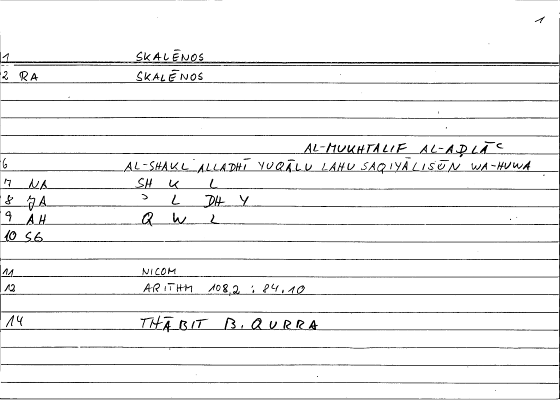 1
1 SKALĒNOS
2 RA SKALĒNOS
AL-MUKHTALIF AL-AḌLĀʿ
6 AL-SHAKL ALLADHĪ YUQĀLU LAHU SAQIYĀLISŪN WA-HUWA
7 NA SH K L
8 JA ʾ L DH Y
9 AH Q W L
10 SG
11 NICOM
13 ARITHM 108,2 : 84.10
14 THĀBIT B. QURRA